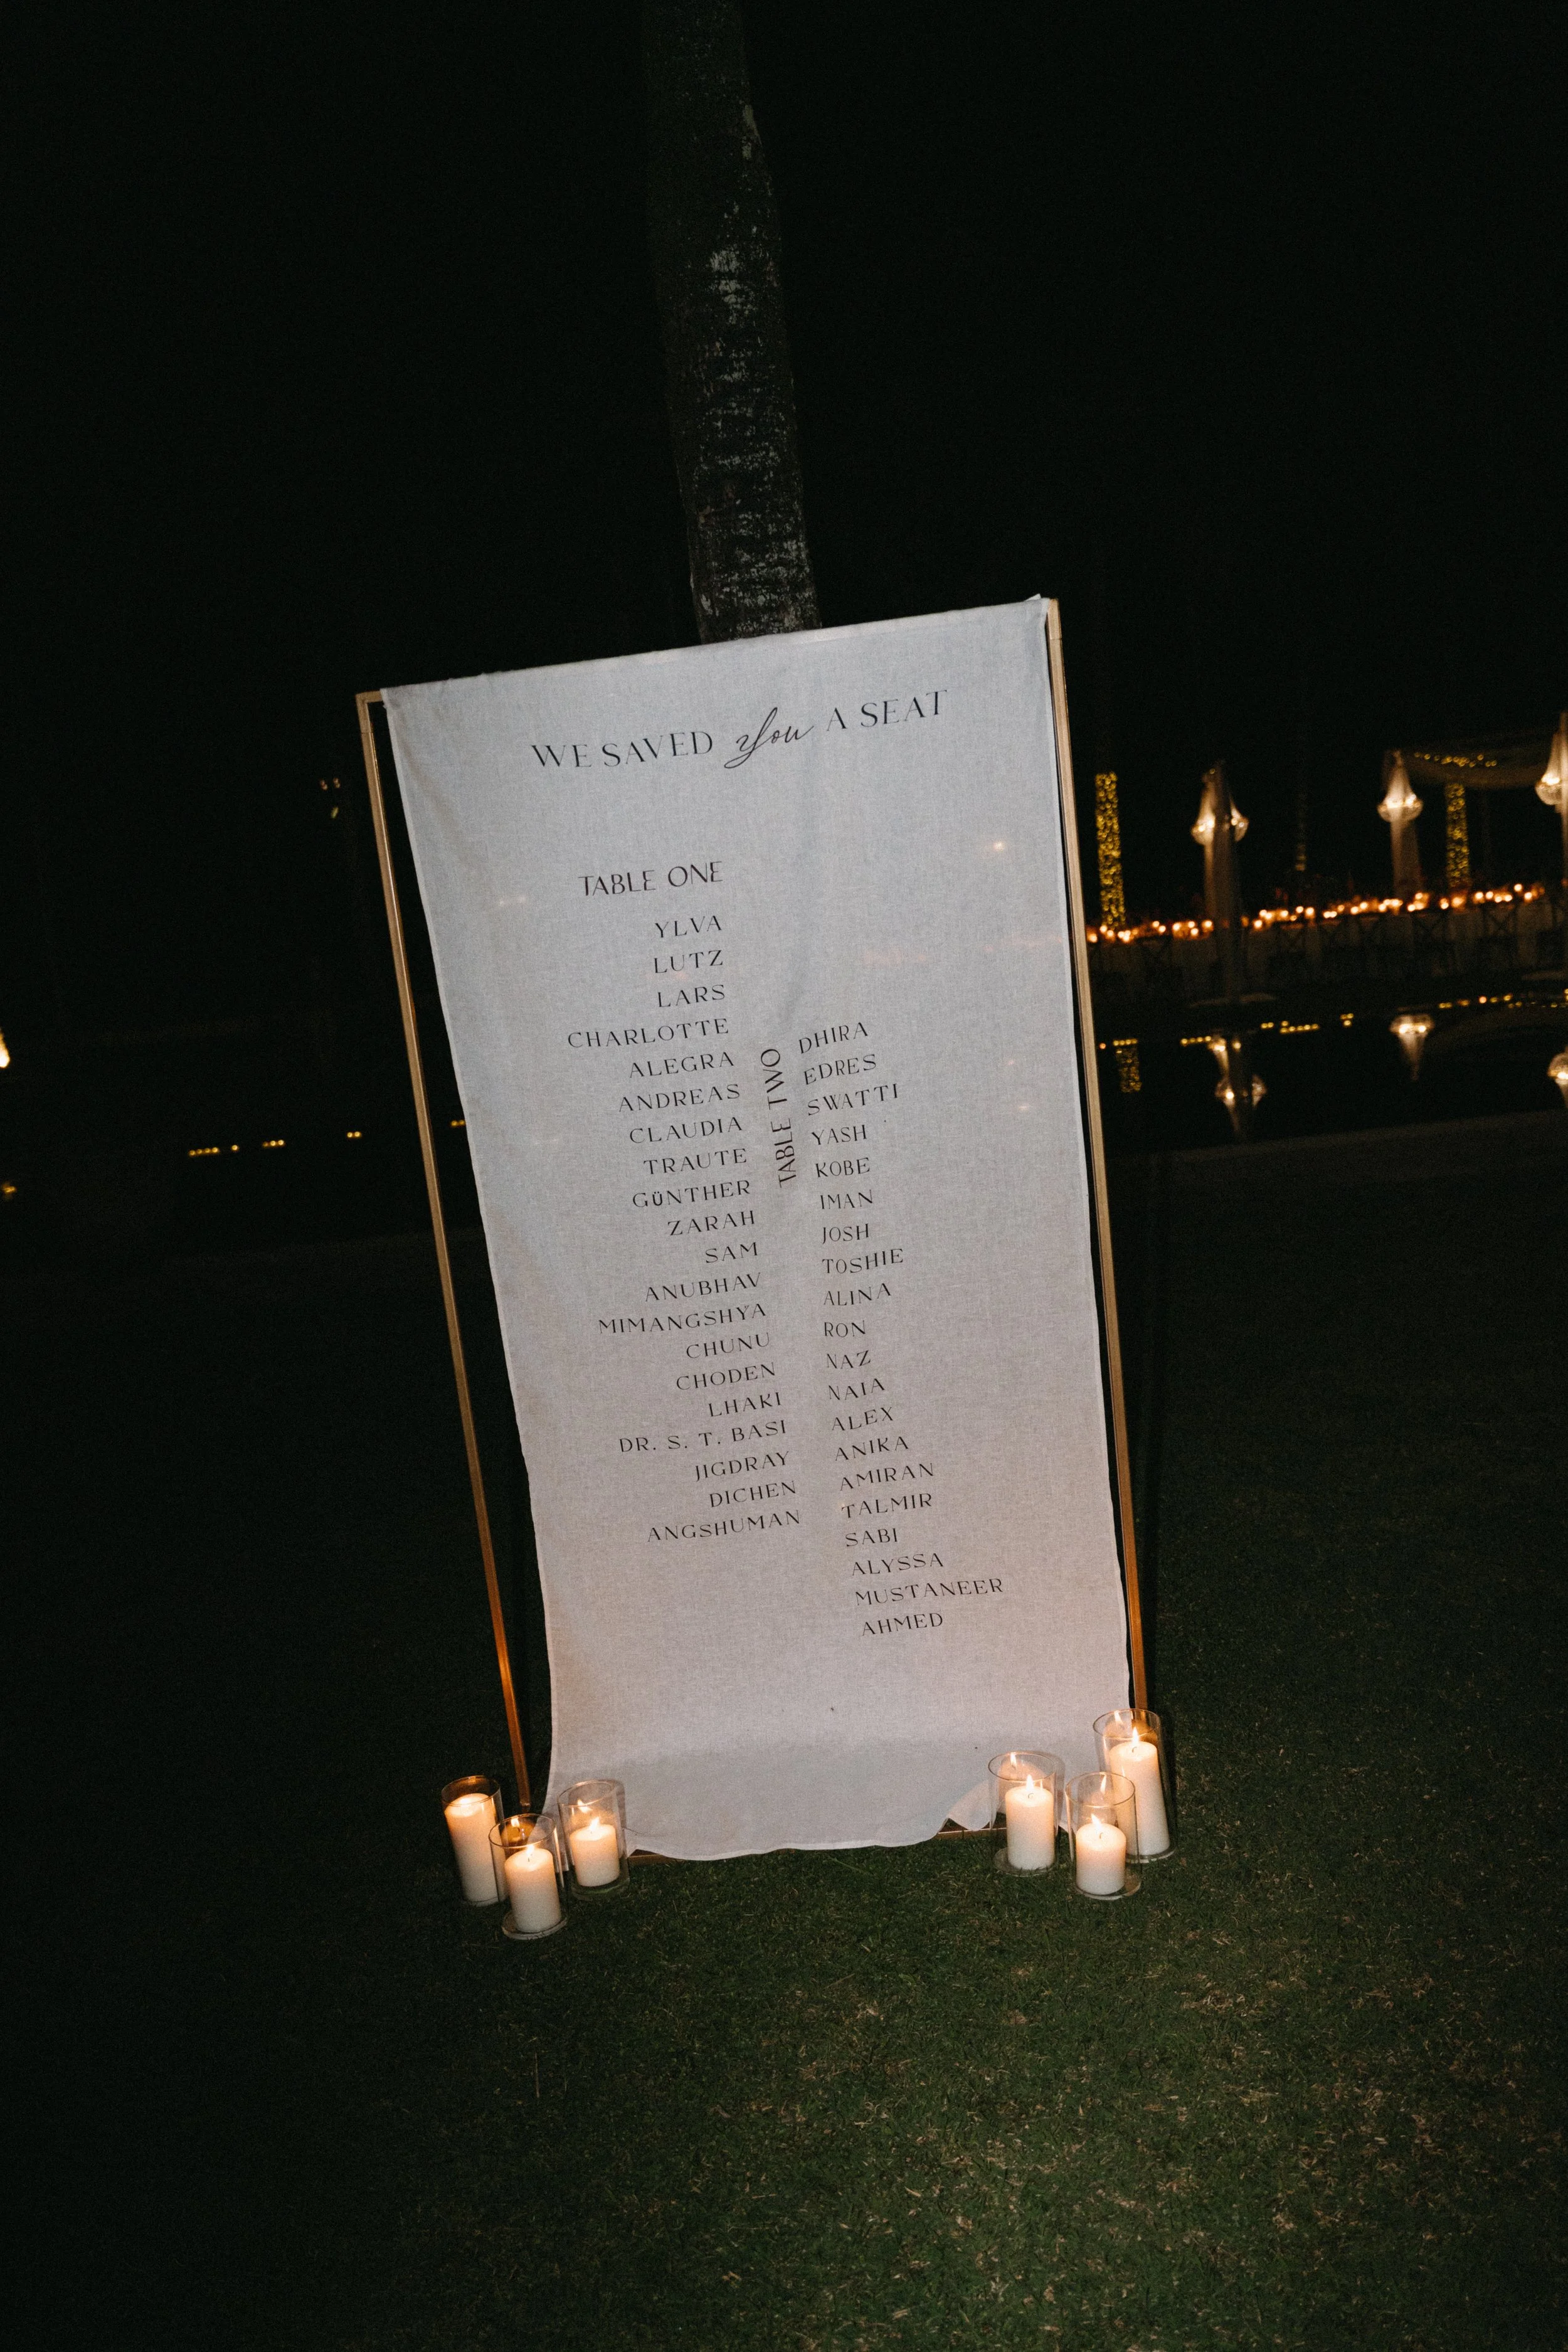 WE SAVED you A SEAT
TABLE ONE
YLVA
LUTZ
LARS
CHARLOTTE
ALEGRA
ANDREAS
CLAUDIA
TRAUTE
GüNTHER
ZARAH
SAM
ANUBHAV
MIMANGSHYA
CHUNU
CHODEN
LHAKI
DR. S. T. BASI
JIGDRAY
DICHEN
ANGSHUMAN
TABLE TWO
DHIRA
EDRES
SWATTI
YASH
KOBE
IMAN
JOSH
TOSHIE
ALINA
RON
NAZ
NAIA
ALEX
ANIKA
AMIRAN
TALMIR
SABI
ALYSSA
MUSTANEER
AHMED